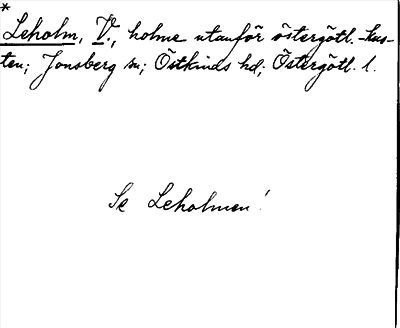 *
Leholm, V., holme utanför östergötl.-kus-
ten; Jonsberg sn; Östkinds hd; Östergötl. l.
Se Leholmen!